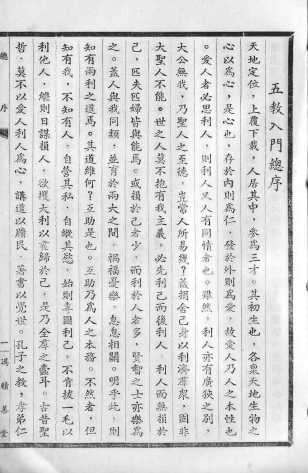 五教入門總序
天地定位，上覆下載，人居其中，參為三才。其初生也，各秉天地生物之
心以為心，是心也，存於內則為仁，發於外則為愛，故愛人乃人之本性也
。愛人者必思利人，則利人又人有同情者也。雖然，利人亦有廣狹之別，
大公無我，乃聖人之至德，豈常人所易幾？蓋捐舍己身以利濟羣眾，固非
大聖人不能。世之人莫不抱有我主義，必先利己而後利人，利人而無損於
己，匹夫匹婦皆與能焉。或損於己者少，而利於人者多，賢智之士亦樂為
之。蓋人與我同類，並育於兩大之間，禍福憂樂，息息相關。明乎此，則
知有兩利之道焉。其道維何？互助是也。互助乃為人之本務。不然者，但
知有我，不知有人，自營其私，自縱其慾，始則專圖利己，不肯拔一毛以
利他人，繼則日謀損人，欲攫大利以竟歸於己，是乃全羣之蠹耳。古昔聖
哲，莫不以愛人利人為心，講道以牖民，著書以覺世。孔子之教，孝弟仁
總序
一
馮積善堂